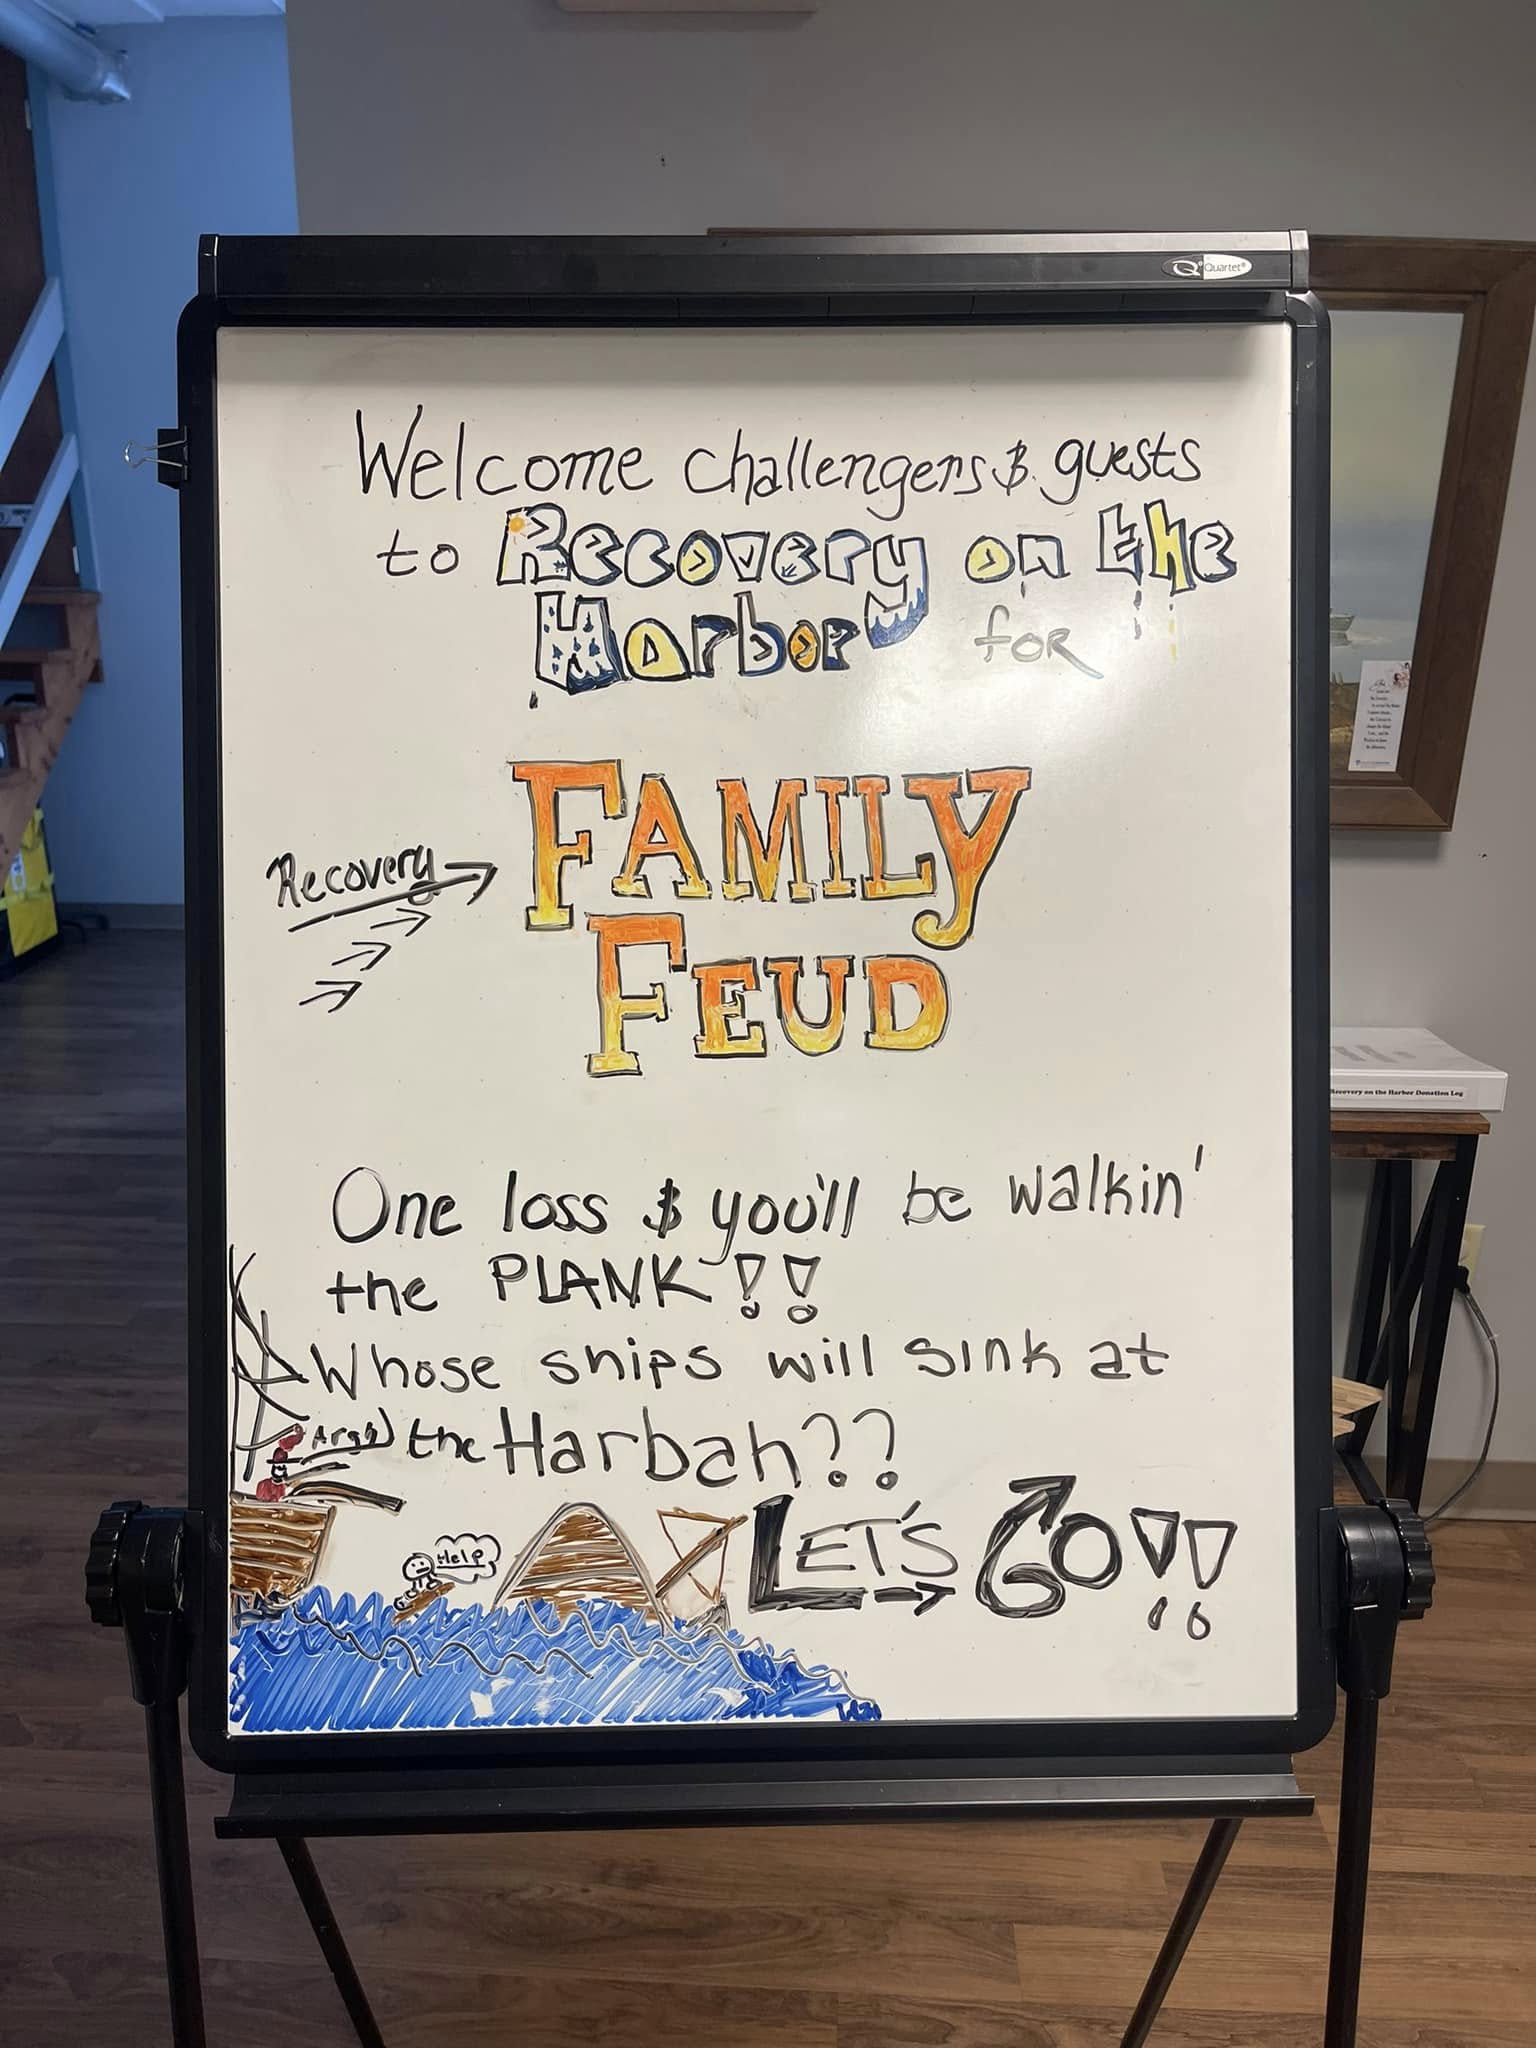 Quartet
Welcome challengers & guests
to Recovery on the
Harbor for
Recovery
FAMILY
FEUD
One loss & you'll be walkin'
the PLANK!!
Whose ships will sink at
the Harbah??
Help
LET'S GO!!
Recovery on the Harbor Donation Log